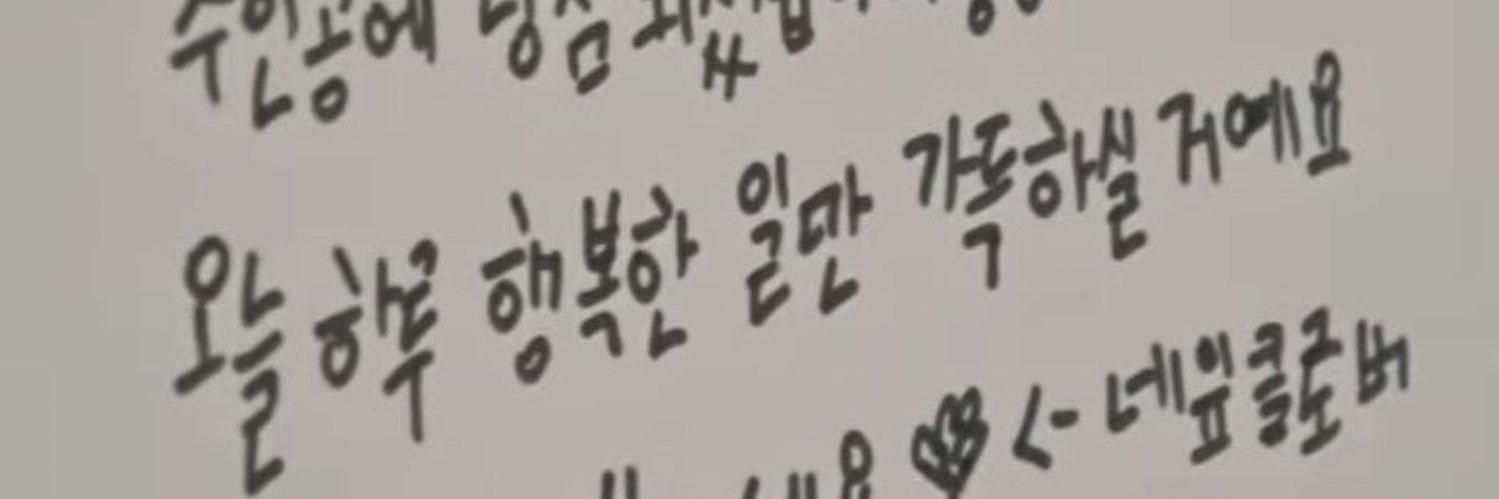 주인공에 당첨되셨습니다
오늘 하루 행복한 일만 가득하실 거예요
요 <- 네잎클로버